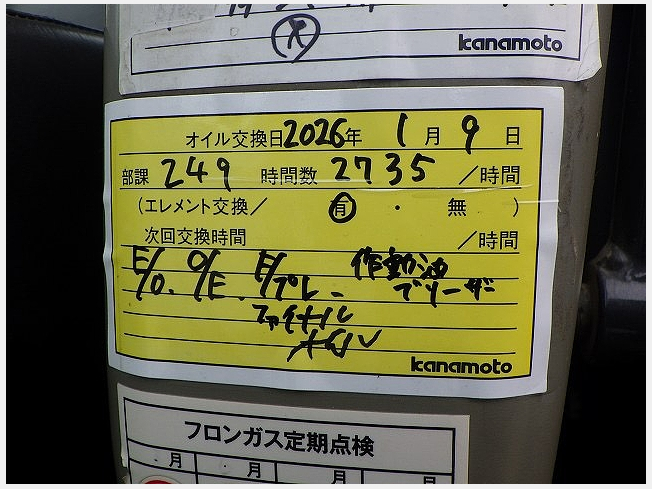 kanamoto
オイル交換日2026年 1月 9日
部課 249 時間数 2735 /時間
(エレメント交換/ 有 ・ 無 )
次回交換時間 /時間
E/O. O/E. E/プレ- 作動油
ブリーザー
ファイナル
オイル
kanamoto
フロンガス定期点検
月 月 月 月